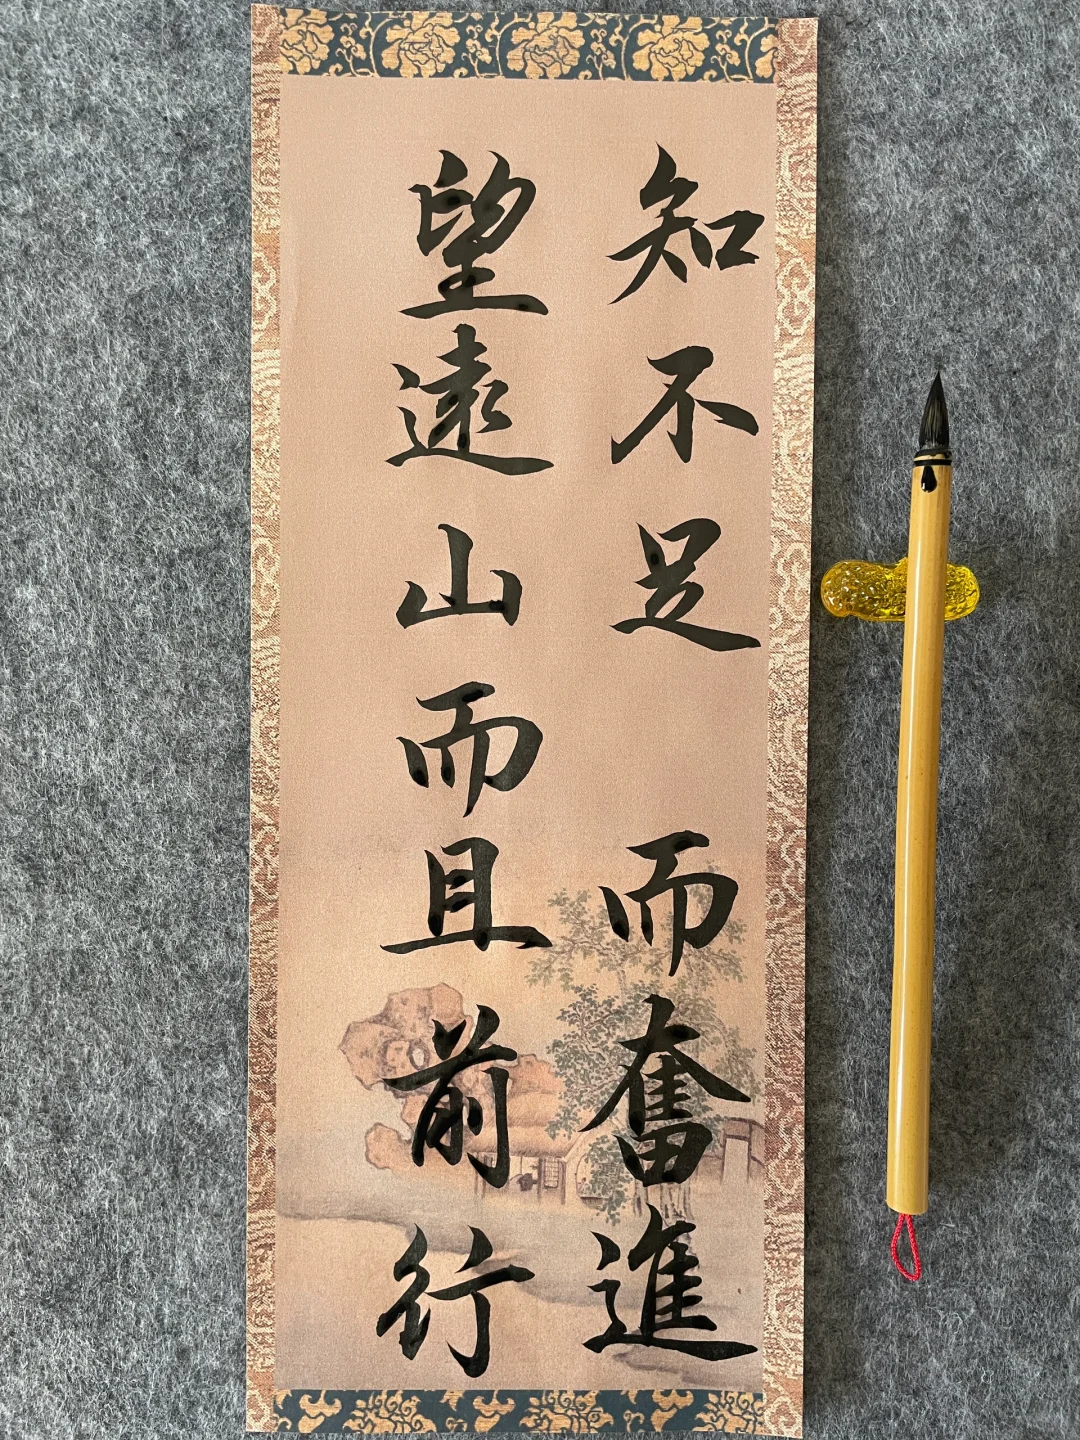 知不足而奮進
望遠山而且前行